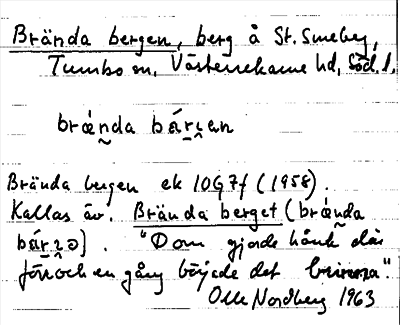 Brända bergen, berg å St. Smeby,
Tumbo sn, Västerrekarne hd, Söd. l.
brǽnda bárɩ̯an
Brända bergen ek 10G7f (1958).
Kallas äv. Brända berget (brǽnda
bárɩ̯ə). "Dom gjorde hånk där
förr och en gång börjede det brinna".
Olle Nordberg 1963